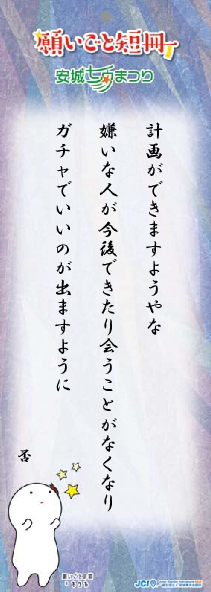 願いごと短冊
安城七夕まつり
計画ができますようやな
嫌いな人が今後できたり会うことがなくなり
ガチャでいいのが出ますように
願いごと短冊
JCI